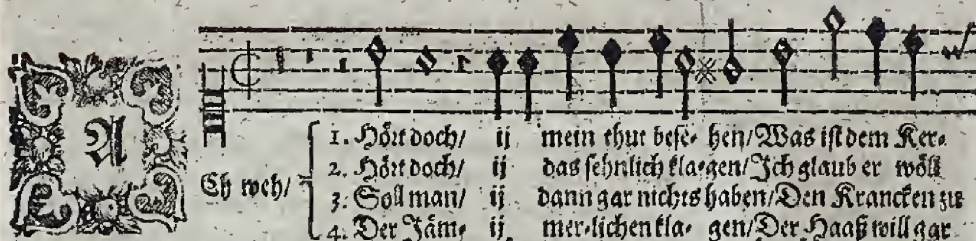 1. Hört doch/ ij mein thut bese- hen/Was ist dem Ker-
2. Hört doch/ ij das sehnlich kla-gen/Ich glaub er wöll
ACh weh/
3. Soll man/ ij dann gar nichts haben/Den Krancken zu
4. Der Jäm- ij mer-lichen kla- gen/Der Haaß will gar